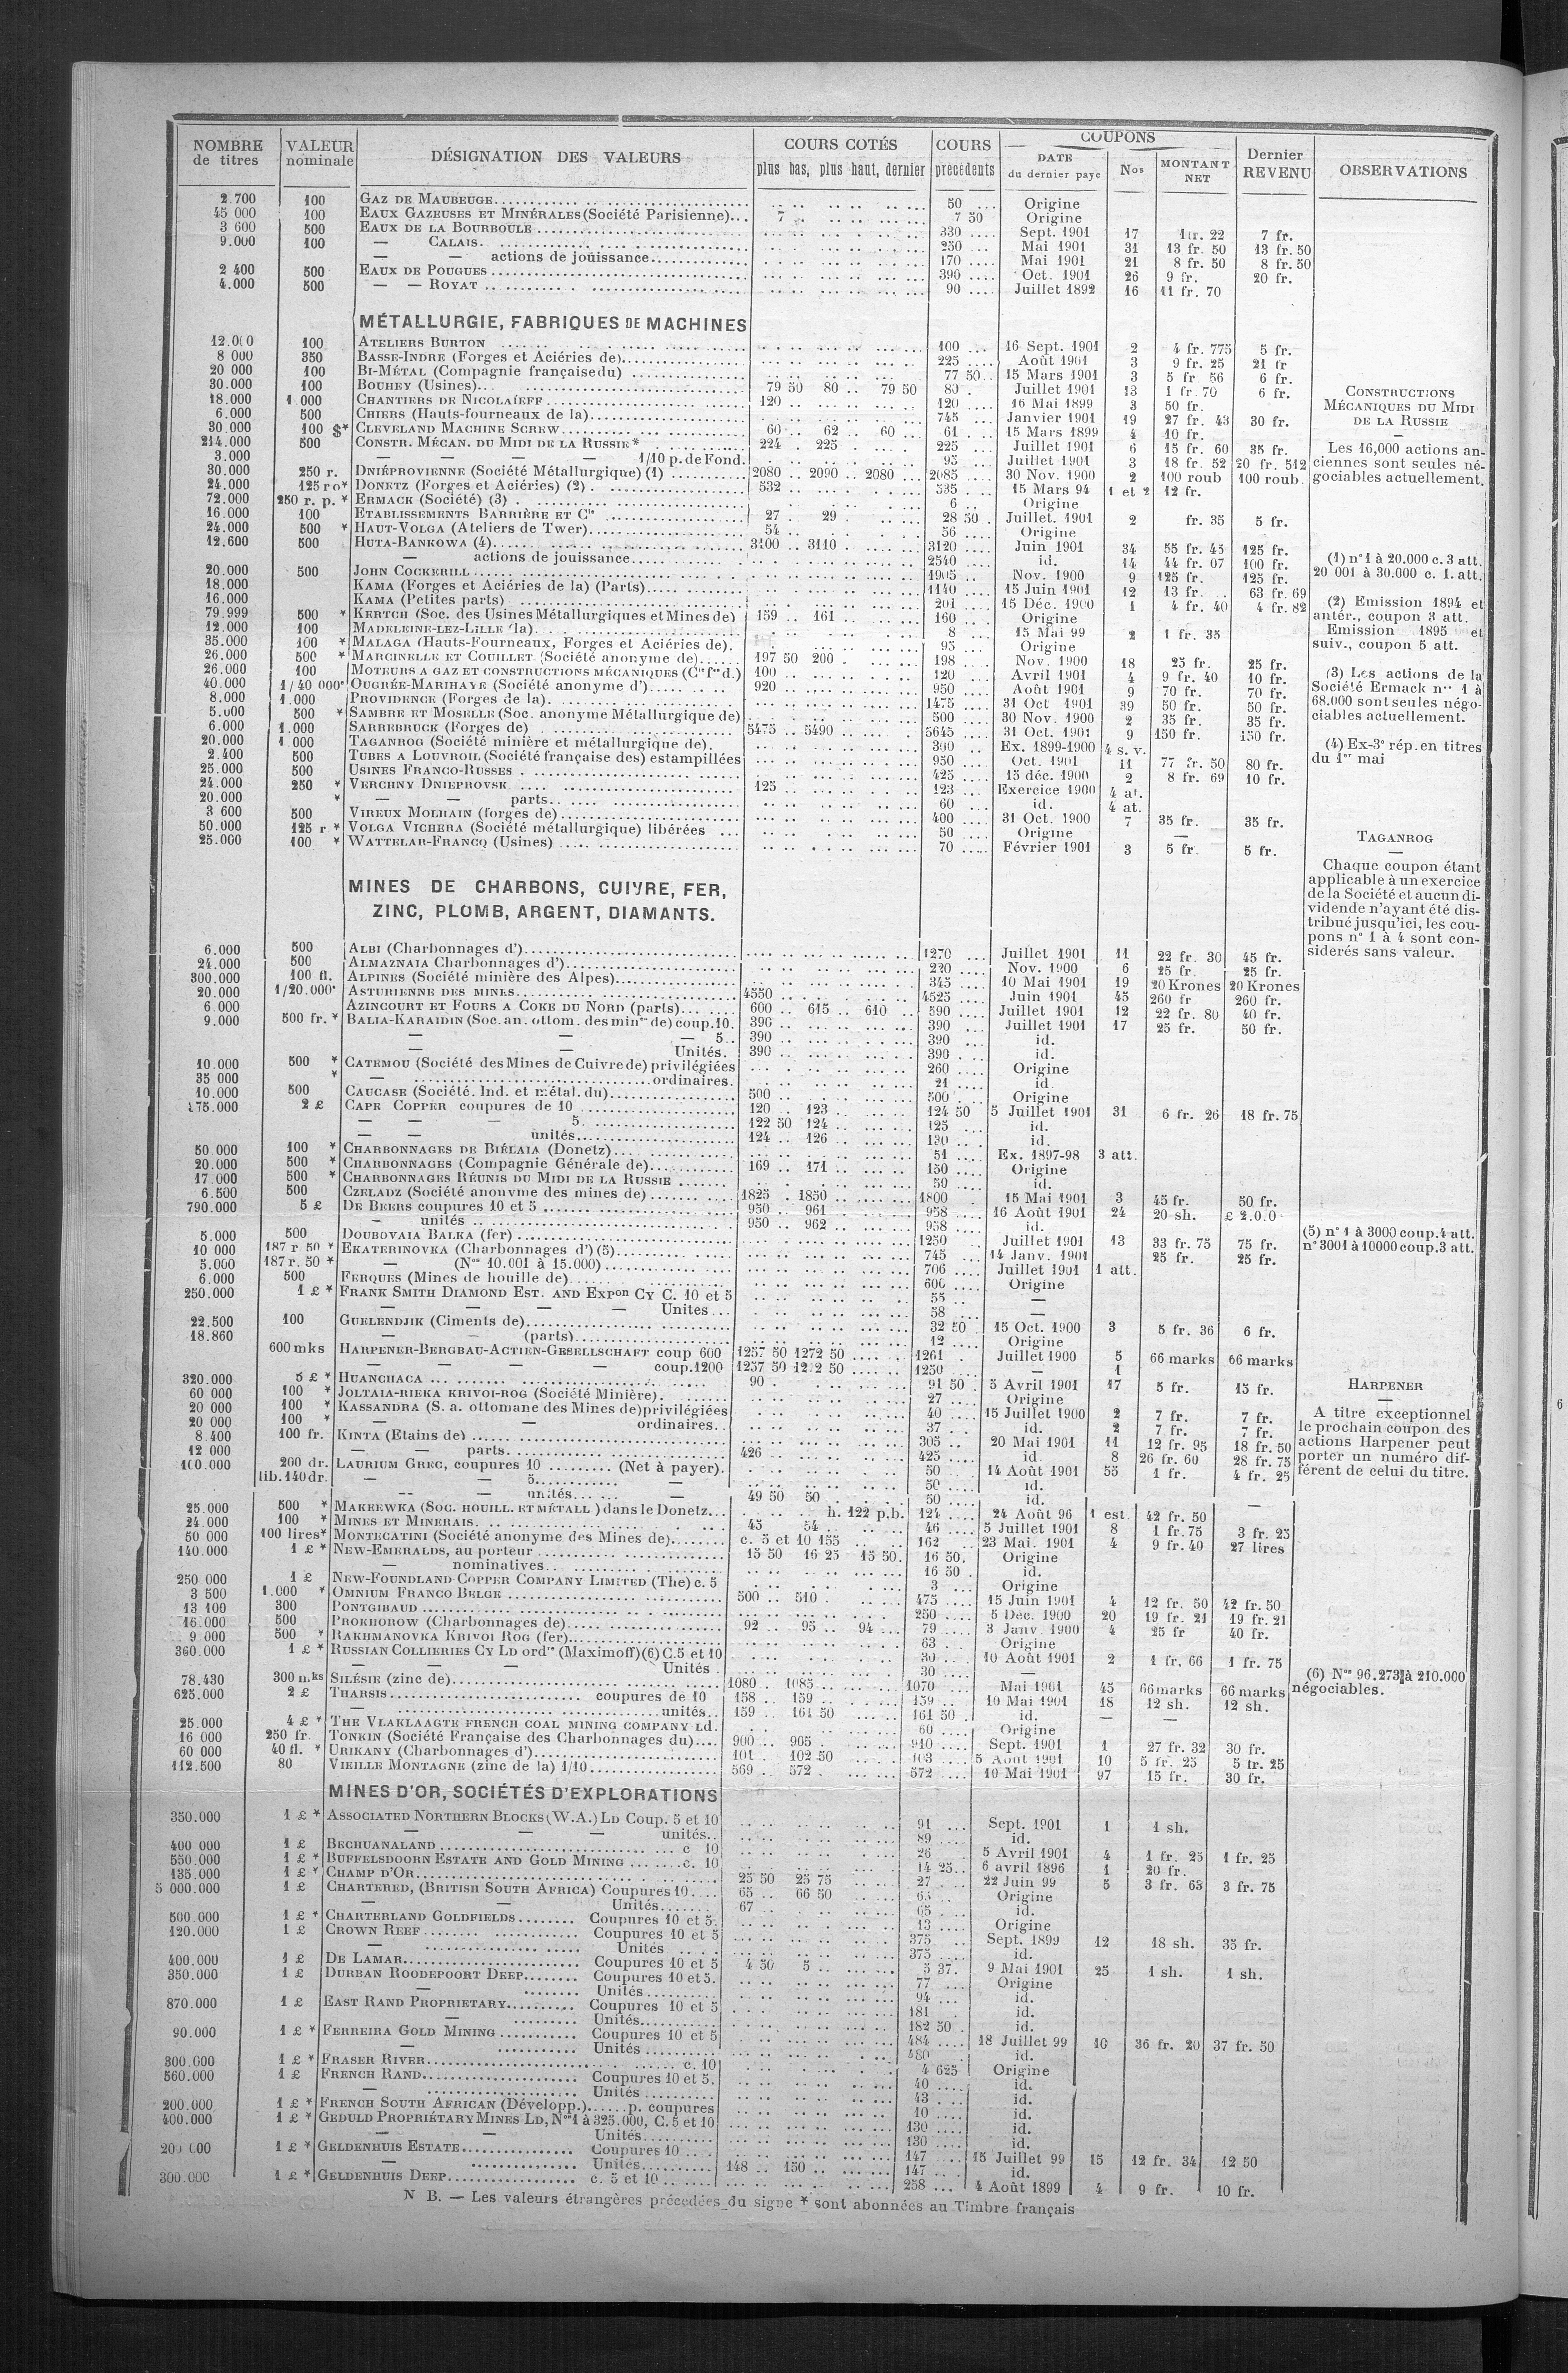 NOMBRE de titres | VALEUR nominale | DÉSIGNATION DES VALEURS | COURS COTÉS plus bas, plus haut, dernier | COURS précédents | COUPONS DATE du dernier payé | Nos | MONTANT NET | Dernier REVENU | OBSERVATIONS
2 700 100 GAZ DE MAUBEUGE 50 Origine
45 000 100 EAUX GAZEUSES ET MINÉRALES (Société Parisienne) 7 7 50 Origine
3 600 500 EAUX DE LA BOURBOULE 330 Sept. 1901 17 1 fr. 22 7 fr.
9.000 100 — CALAIS 250 Mai 1901 31 13 fr. 50 13 fr. 50
— — actions de jouissance 170 Mai 1901 21 8 fr. 50 8 fr. 50
2 400 500 EAUX DE POUGUES 390 Oct. 1901 26 9 fr. 20 fr.
4.000 500 — — ROYAT 90 Juillet 1892 16 11 fr. 70
MÉTALLURGIE, FABRIQUES DE MACHINES
12.000 100 ATELIERS BURTON 100 16 Sept. 1901 2 4 fr. 775 5 fr.
8 000 350 BASSE-INDRE (Forges et Aciéries de) 225 Août 1901 3 9 fr. 25 21 fr
20 000 100 BI-MÉTAL (Compagnie française du) 77 50 15 Mars 1901 3 5 fr 56 6 fr.
30.000 100 BOUHEY (Usines) 79 50 80 79 50 80 Juillet 1901 13 1 fr. 70 6 fr.
18.000 1 000 CHANTIERS DE NICOLAÏEFF 120 120 16 Mai 1899 3 50 fr.
6.000 500 CHIERS (Hauts-fourneaux de la) 745 Janvier 1901 19 27 fr. 43 30 fr.
30.000 100 $* CLEVELAND MACHINE SCREW 60 62 60 61 15 Mars 1899 4 10 fr.
214.000 500 CONSTR. MÉCAN. DU MIDI DE LA RUSSIE* 224 225 225 Juillet 1901 6 15 fr. 60 35 fr.
3.000 — — — — 1/10 p. de Fond. 95 Juillet 1901 3 18 fr. 52 20 fr. 512
30.000 250 r. DNIÉPROVIENNE (Société Métallurgique) (1) 2080 2090 2080 2085 30 Nov. 1900 2 100 roub 100 roub.
24.000 125 ro* DONETZ (Forges et Aciéries) (2) 532 535 15 Mars 94 1 et 2 12 fr.
72.000 250 r. p. * ERMACK (Société) (3) 6 Origine
16.000 100 ETABLISSEMENTS BARRIÈRE ET Cie 27 29 28 50 Juillet. 1901 2 fr. 35 5 fr.
24.000 500 * HAUT-VOLGA (Ateliers de Twer) 54 56 Origine
12.600 500 HUTA-BANKOWA (4) 3100 3110 3120 Juin 1901 34 55 fr. 45 125 fr.
— actions de jouissance 2540 id. 14 44 fr. 07 100 fr.
20.000 500 JOHN COCKERILL 1905 Nov. 1900 9 125 fr. 125 fr.
18.000 KAMA (Forges et Aciéries de la) (Parts) 1140 15 Juin 1901 12 13 fr. 63 fr. 69
16.000 KAMA (Petites parts) 201 15 Déc. 1900 1 4 fr. 40 4 fr. 82
79.999 500 * KERTCH (Soc. des Usines Métallurgiques et Mines de) 159 161 160 Origine
12.000 100 MADELEINE-LEZ-LILLE (la) 8 15 Mai 99 2 1 fr. 35
35.000 100 * MALAGA (Hauts-Fourneaux, Forges et Aciéries de) 95 Origine
26.000 500 * MARCINELLE ET COUILLET (Société anonyme de) 197 50 200 198 Nov. 1900 18 25 fr. 25 fr.
26.000 100 MOTEURS A GAZ ET CONSTRUCTIONS MÉCANIQUES (Cie fse d.) 100 120 Avril 1901 4 9 fr. 40 10 fr.
40.000 1/40 000e OUGRÉE-MARIHAYE (Société anonyme d') 920 950 Août 1901 9 70 fr. 70 fr.
8.000 1.000 PROVIDENCE (Forges de la) 1475 31 Oct 1901 39 50 fr. 50 fr.
5.000 500 * SAMBRE ET MOSELLE (Soc. anonyme Métallurgique de) 500 30 Nov. 1900 2 35 fr. 35 fr.
6.000 1.000 SARREBRUCK (Forges de) 5475 5490 5645 31 Oct. 1901 9 150 fr. 150 fr.
20.000 1 000 TAGANROG (Société minière et métallurgique de) 390 Ex. 1899-1900 4 s. v.
2.400 500 TUBES A LOUVROIL (Société française des) estampillées 950 Oct. 1901 11 77 fr. 50 80 fr.
25.000 500 USINES FRANCO-RUSSES 425 15 déc. 1900 2 8 fr. 69 10 fr.
24.000 250 * VERCHNY DNIEPROVSK 125 123 Exercice 1900 4 at.
20.000 * — — parts 60 id. 4 at.
3 600 500 VIREUX MOLHAIN (forges de) 400 31 Oct. 1900 7 35 fr. 35 fr.
50.000 125 r * VOLGA VICHERA (Société métallurgique) libérées 50 Origine —
25.000 100 * WATTELAR-FRANCQ (Usines) 70 Février 1901 3 5 fr. 5 fr.
CONSTRUCTIONS
MÉCANIQUES DU MIDI
DE LA RUSSIE
—
Les 16,000 actions an-
ciennes sont seules né-
gociables actuellement.
(1) n° 1 à 20.000 c. 3 att.
20 001 à 30.000 c. 1. att.
(2) Emission 1894 et
antér., coupon 3 att.
Emission 1895 et
suiv., coupon 5 att.
(3) Les actions de la
Société Ermack nos 1 à
68.000 sont seules négo-
ciables actuellement.
(4) Ex-3e rép. en titres
du 1er mai
TAGANROG
—
Chaque coupon étant
applicable à un exercice
de la Société et aucun di-
vidende n'ayant été dis-
tribué jusqu'ici, les cou-
pons n° 1 à 4 sont con-
siderés sans valeur.
MINES DE CHARBONS, CUIVRE, FER,
ZINC, PLOMB, ARGENT, DIAMANTS.
6.000 500 ALBI (Charbonnages d') 1270 Juillet 1901 11 22 fr. 30 45 fr.
24.000 500 ALMAZNAIA Charbonnages d') 220 Nov. 1900 6 25 fr. 25 fr.
300.000 100 fl. ALPINES (Société minière des Alpes) 345 10 Mai 1901 19 20 Krones 20 Krones
20.000 1/20.000e ASTURIENNE DES MINES 4550 4525 Juin 1901 45 260 fr 260 fr.
6.000 AZINCOURT ET FOURS A COKE DU NORD (parts) 600 615 610 590 Juillet 1901 12 22 fr. 80 40 fr.
9.000 500 fr. * BALIA-KARAIDIN (Soc. an. ottom. des mines de) coup. 10. 390 390 Juillet 1901 17 25 fr. 50 fr.
— — — 5 390 390 id.
— — Unités. 390 390 id.
10.000 500 * CATEMOU (Société des Mines de Cuivre de) privilégiées 260 Origine
35 000 * — ordinaires. 21 id.
10.000 500 CAUCASE (Société. Ind. et métal. du) 500 500 Origine
175.000 2 £ CAPE COPPER coupures de 10 120 123 124 50 5 Juillet 1901 31 6 fr. 26 18 fr. 75
— — — 5 122 50 124 125 id.
— — unités 124 126 130 id.
50.000 100 * CHARBONNAGES DE BIÉLAIA (Donetz) 51 Ex. 1897-98 3 att.
20.000 500 * CHARBONNAGES (Compagnie Générale de) 169 171 150 Origine
17.000 500 * CHARBONNAGES RÉUNIS DU MIDI DE LA RUSSIE 50 id.
6.500 500 CZELADZ (Société anonyme des mines de) 1825 1850 1800 15 Mai 1901 3 45 fr. 50 fr.
790.000 5 £ DE BEERS coupures 10 et 5 950 961 958 16 Août 1901 24 20 sh. £ 2.0.0
— unités 950 962 958 id.
5.000 500 DOUBOVAIA BALKA (fer) 1250 Juillet 1901 13 33 fr. 75 75 fr.
10 000 187 r. 50 * EKATERINOVKA (Charbonnages d') (5) 745 14 Janv. 1901 25 fr. 25 fr.
5.000 187 r. 50 * — (Nos 10.001 à 15.000) 706 Juillet 1901 1 att.
6.000 500 FERQUES (Mines de houille de) 600 Origine
250.000 1 £ * FRANK SMITH DIAMOND EST. AND EXPon CY C. 10 et 5 55 —
— — — — Unites 58 —
22.500 100 GUELENDJIK (Ciments de) 32 50 15 Oct. 1900 3 5 fr. 36 6 fr.
18.860 — — (parts) 12 Origine
600 mks HARPENER-BERGBAU-ACTIEN-GESELLSCHAFT coup 600 1257 50 1272 50 1261 Juillet 1900 5 66 marks 66 marks
— — — — coup. 1200 1257 50 1250 — 1
320.000 5 £ * HUANCHACA 90 91 50 5 Avril 1901 17 5 fr. 15 fr.
60 000 100 * JOLTAIA-RIEKA KRIVOI-ROG (Société Minière) 27 Origine
20 000 100 * KASSANDRA (S. a. ottomane des Mines de) privilégiées 40 15 Juillet 1900 2 7 fr. 7 fr.
20 000 100 * — — ordinaires 37 id. 2 7 fr. 7 fr.
8 400 100 fr. KINTA (Etains de) 305 20 Mai 1901 11 12 fr. 95 18 fr. 50
12 000 — — parts 426 425 id 8 26 fr. 60 28 fr. 75
100.000 200 dr. LAURIUM GREC, coupures 10 (Net à payer) 50 14 Août 1901 55 1 fr. 4 fr. 25
lib. 140 dr. — — 5 — 50 id.
— — unités — 49 50 50 50 id. —
25.000 500 * MAKEEWKA (SOC. HOUILL. ET MÉTALL.) dans le Donetz h. 122 p.b. 124 24 Août 96 1 est. 42 fr. 50
24.000 100 * MINES ET MINERAIS 45 54 46 5 Juillet 1901 8 1 fr. 75 3 fr. 25
50 000 100 lires* MONTECATINI (Société anonyme des Mines de) c. 5 et 10 155 162 23 Mai. 1901 4 9 fr. 40 27 lires
140.000 1 £ * NEW-EMERALDS, au porteur 15 50 16 25 15 50 16 50 Origine
— nominatives 16 50 id.
250 000 1 £ NEW-FOUNDLAND COPPER COMPANY LIMITED (The) c. 5 3 Origine
3 500 1.000 * OMNIUM FRANCO BELGE 500 510 475 15 Juin 1901 4 12 fr. 50 42 fr. 50
13 100 300 PONTGIBAUD 250 5 Déc. 1900 20 19 fr. 21 19 fr. 21
16.000 500 PROKHOROW (Charbonnages de) 92 95 94 79 3 Janv. 1900 4 25 fr 40 fr.
9 000 500 * RAKHMANOVKA KRIVOI ROG (fer) 63 Origine
360.000 1 £ * RUSSIAN COLLIERIES CY LD ordres (Maximoff) (6) C. 5 et 10 30 10 Août 1901 2 1 fr. 66 1 fr. 75
Unités 30 —
78.430 300 m.ks SILÉSIE (zinc de) 1080 1085 1070 Mai 1901 45 66 marks 66 marks
625.000 2 £ THARSIS coupures de 10 158 159 159 10 Mai 1901 18 12 sh. 12 sh.
— unités 159 161 50 161 50 id. — —
25.000 4 £ * THE VLAKLAAGTE FRENCH COAL MINING COMPANY Ld. 60 Origine
16 000 250 fr. TONKIN (Société Française des Charbonnages du) 900 905 910 Sept. 1901 1 27 fr. 32 30 fr.
60 000 40 fl. * URIKANY (Charbonnages d') 101 102 50 103 5 Août 1901 10 5 fr. 25 5 fr. 25
112.500 80 VIEILLE MONTAGNE (zinc de la) 1/10 569 572 572 10 Mai 1901 97 15 fr. 30 fr.
(5) n° 1 à 3000 coup. 4 att.
n° 3001 à 10000 coup. 3 att.
HARPENER
—
A titre exceptionnel
le prochain coupon des
actions Harpener peut
porter un numéro dif-
férent de celui du titre.
(6) Nos 96.273 à 210.000
négociables.
MINES D'OR, SOCIÉTÉS D'EXPLORATIONS
350.000 1 £ * ASSOCIATED NORTHERN BLOCKS (W.A.) LD Coup. 5 et 10 91 Sept. 1901 1 1 sh.
— — — unités 89 id.
400 000 1 £ BECHUANALAND c 10 26 5 Avril 1901 4 1 fr. 25 1 fr. 25
550.000 1 £ * BUFFELSDOORN ESTATE AND GOLD MINING c. 10 14 25 6 avril 1896 1 20 fr.
135.000 1 £ * CHAMP D'OR 25 50 25 75 27 22 Juin 99 5 3 fr. 63 3 fr. 75
5 000.000 1 £ CHARTERED, (BRITISH SOUTH AFRICA) Coupures 10 65 66 50 65 Origine
— — Unités 67 65 id.
500.000 1 £ * CHARTERLAND GOLDFIELDS Coupures 10 et 5 13 Origine
120.000 1 £ CROWN REEF Coupures 10 et 5 375 Sept. 1899 12 18 sh. 35 fr.
— Unités 375 id.
400.000 1 £ DE LAMAR Coupures 10 et 5 4 50 5 5 37 9 Mai 1901 25 1 sh. 1 sh.
350.000 1 £ DURBAN ROODEPOORT DEEP Coupures 10 et 5. 77 Origine
— Unités 94 id.
870.000 1 £ EAST RAND PROPRIETARY Coupures 10 et 5 181 id.
— Unités 182 50 id.
90.000 1 £ * FERREIRA GOLD MINING Coupures 10 et 5 484 18 Juillet 99 10 36 fr. 20 37 fr. 50
— Unités 480 id.
300.000 1 £ * FRASER RIVER c. 10 4 625 Origine
560.000 1 £ FRENCH RAND Coupures 10 et 5. 40 id.
— Unités 43 id.
200.000 1 £ * FRENCH SOUTH AFRICAN (Développ.) p. coupures 10 id.
400.000 1 £ * GEDULD PROPRIÉTARY MINES LD, Nos 1 à 325.000, C. 5 et 10 130 id.
— — Unités 130 id.
200 000 1 £ * GELDENHUIS ESTATE Coupures 10 147 15 Juillet 99 15 12 fr. 34 12 50
— Unités 148 150 147 id.
300.000 1 £ * GELDENHUIS DEEP c. 5 et 10 258 4 Août 1899 4 9 fr. 10 fr.
N B. — Les valeurs étrangères précédées du signe * sont abonnées au Timbre français